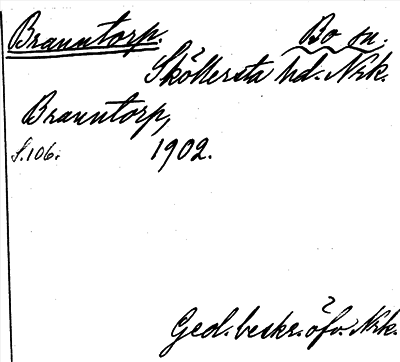 Branntorp. Bo sn.
Sköllersta hd. Nrk.
Branntorp,
s. 106. 1902.
Geol. beskr. öfv. Nrk.